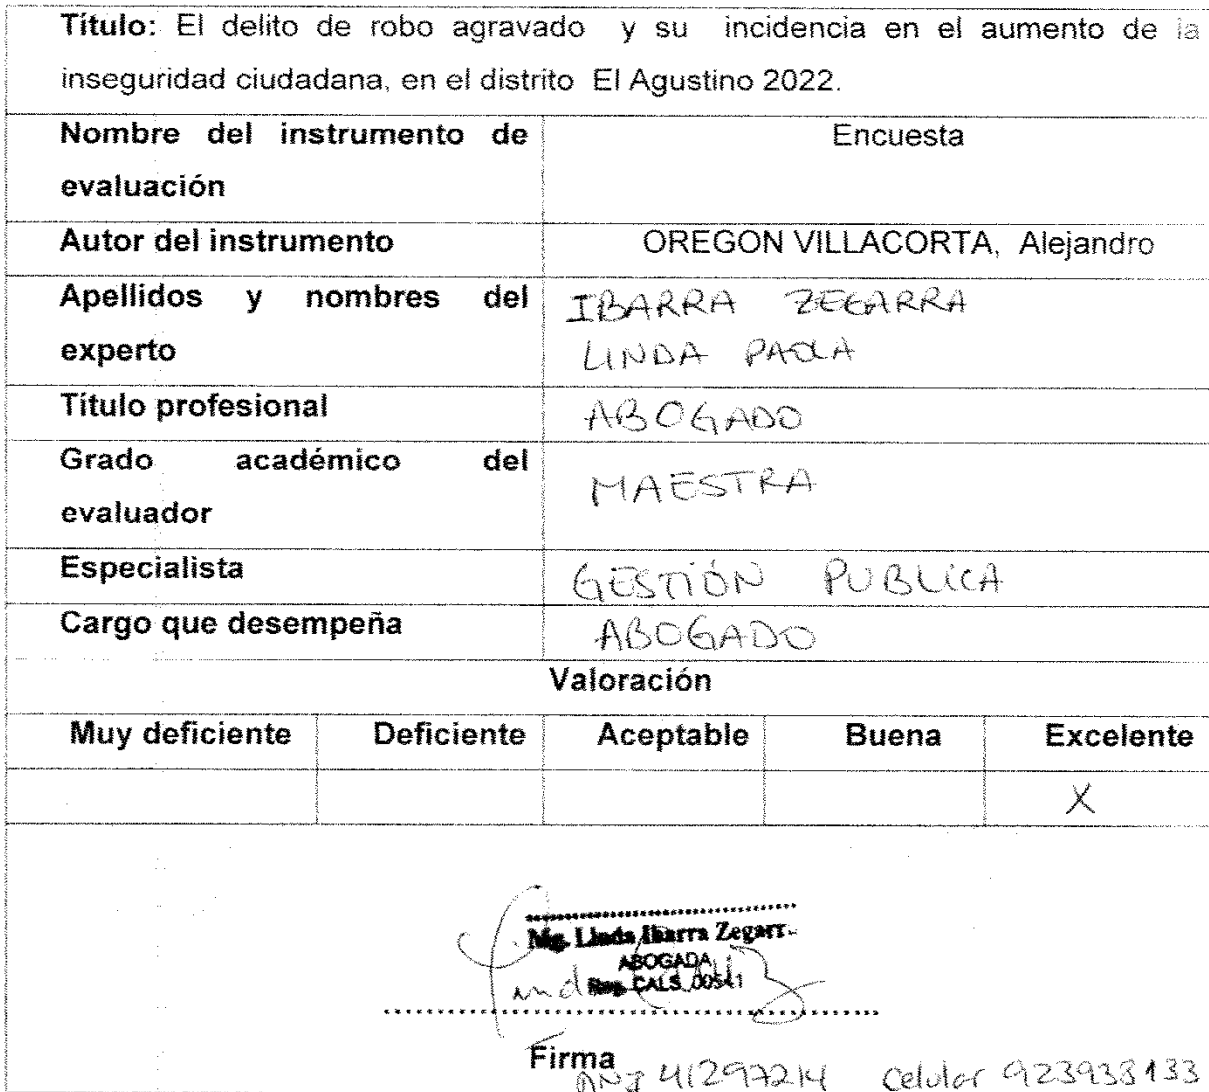 Título: El delito de robo agravado y su incidencia en el aumento de la
inseguridad ciudadana, en el distrito El Agustino 2022.
Nombre del instrumento de
evaluación
Encuesta
Autor del instrumento
OREGON VILLACORTA, Alejandro
Apellidos y nombres del
experto
IBARRA ZEGARRA
LINDA PAOLA
Título profesional
ABOGADO
Grado académico del
evaluador
MAESTRA
Especialista
GESTIÓN PUBLICA
Cargo que desempeña
ABOGADO
Valoración
Muy deficiente Deficiente Aceptable Buena Excelente
X
Mg. Linda Ibarra Zegarr
ABOGADA
Reg. CALS. 00541
Firma
DNI 41297214 Celular 923938133